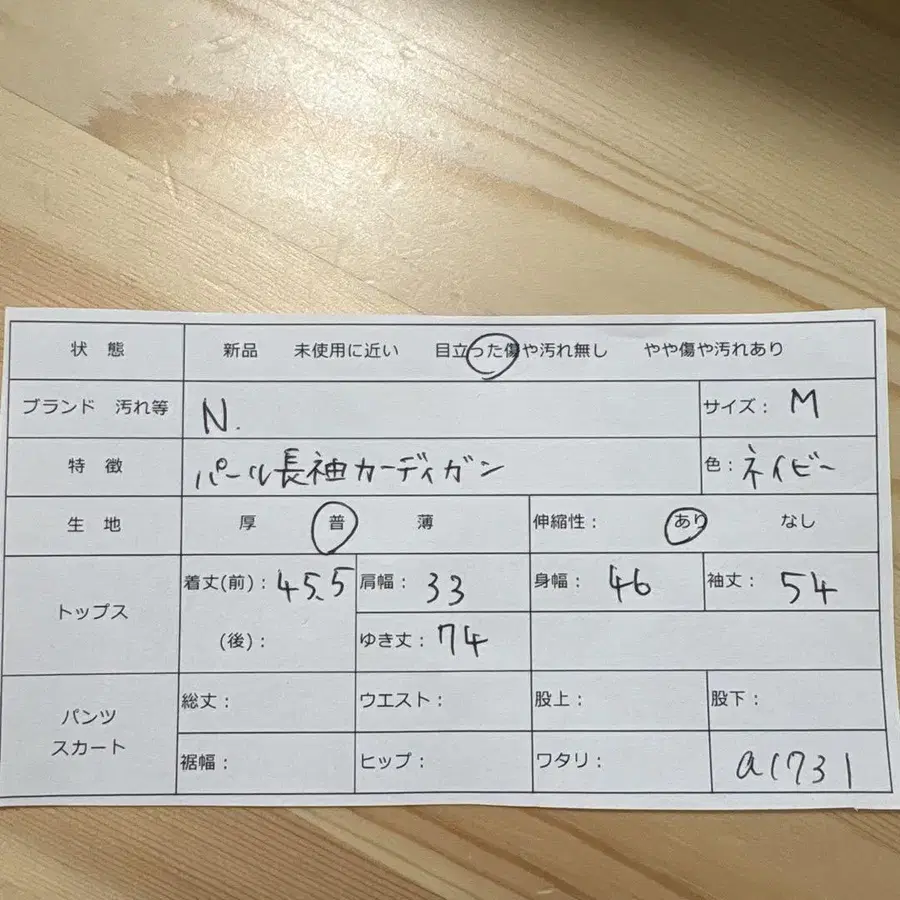 状 態 新品 未使用に近い 目立った傷や汚れ無し やや傷や汚れあり
ブランド 汚れ等 N. サイズ： M
特 徴 パール長袖カーディガン 色：ネイビー
生 地 厚 普 薄 伸縮性： あり なし
トップス 着丈(前)：45.5 肩幅：33 身幅：46 袖丈：54
(後)： ゆき丈：74
パンツ スカート 総丈： ウエスト： 股上： 股下：
裾幅： ヒップ： ワタリ： a1731